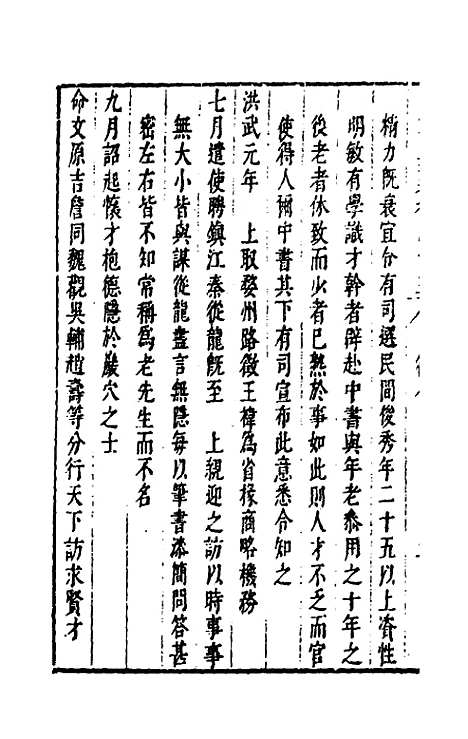 精力旣衰宜令有司選民間俊秀年二十五以上資性
明敏有學識才幹者辟赴中書與年老叅用之十年之
後老者休致而少者已熟於事如此則人才不乏而官
使得人爾中書其下有司宣布此意悉令知之
洪武元年　上取婺州路徵王禕爲省掾商略機務
七月遣使聘鎮江秦從龍旣至　上親迎之訪以時事事
無大小皆與謀從龍盡言無隱每以筆書漆簡問答甚
密左右皆不知常稱爲老先生而不名
九月詔起懷才抱德隱於巖穴之士
命文原吉詹同魏觀吳輔趙壽等分行天下訪求賢才